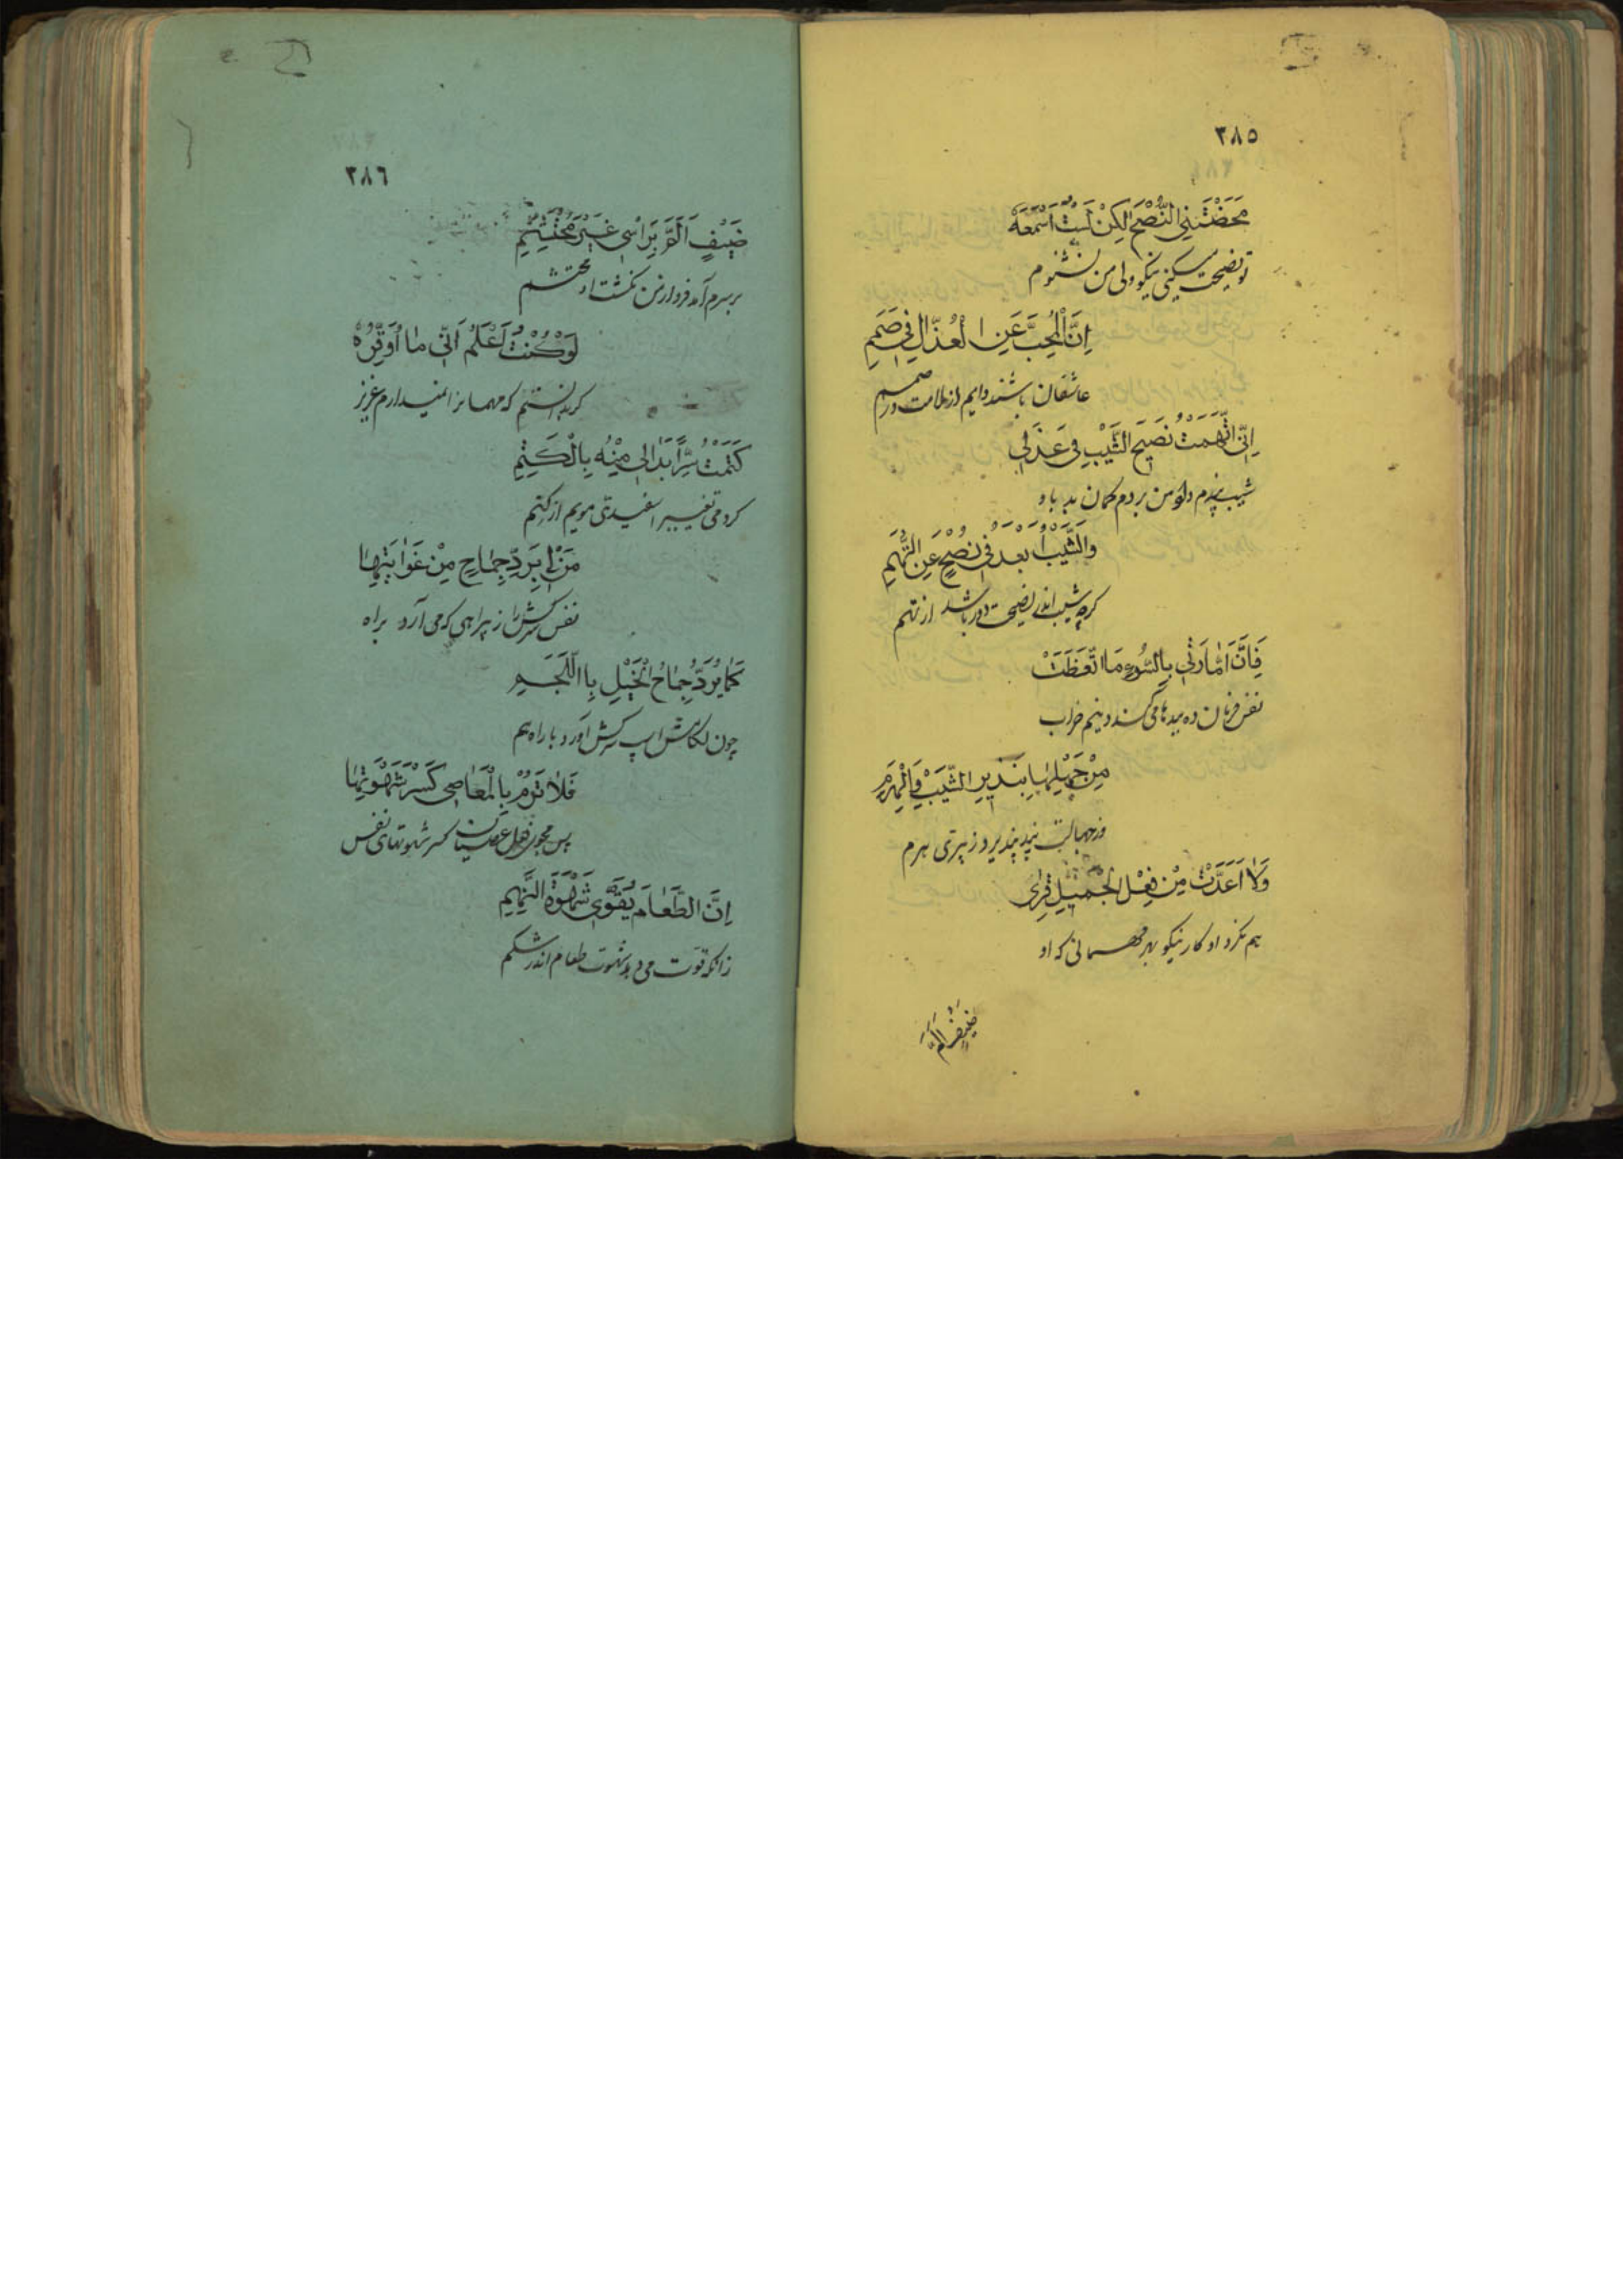 ٣٨٥
مَحَضْتَنِي النُّصْحَ لٰكِنْ لَسْتُ اَسْمَعُهُ
تو نصیحت میکنی نیکو ولی من نشنوم
اِنَّ الْمُحِبَّ عَنِ الْعُذَّالِ فِي صَمَمِ
عاشقان باشند دایم از ملامت در صمم
اِنِّي اتَّهَمْتُ نَصِيحَ الشَّيْبِ فِي عَذَلِي
شیب پندم داد من بردم گمان بد باو
وَالشَّيْبُ اَبْعَدُ فِي نُصْحٍ عَنِ التُّهَمِ
گرچه شیب اندر نصیحت دور باشد از تهم
فَاِنَّ اَمَّارَتِي بِالسُّوءِ مَا اتَّعَظَتْ
نفس فرمان ده ببدها می کند دینم خراب
مِنْ جَهْلِهَا بِنَذِيرِ الشَّيْبِ وَالْهَرَمِ
وز جهالت پند نپذیرد ز پیری هرم
وَلَا اَعَدَّتْ مِنْ فِعْلِ الْجَمِيلِ قِرٰی
هم نکرد او کار نیکو بهر مهمانی که او
ضَيْفٍ اَلَمَّ
٣٨٦
ضَيْفٍ اَلَمَّ بِرَاْسِي غَيْرَ مُحْتَشِمِ
بر سرم آمد فرود از من نگشت او محتشم
لَوْ كُنْتُ اَعْلَمُ اَنِّي مَا اُوَقِّرُهُ
گر بدانستم که مهمانرا نمیدارم عزیز
كَتَمْتُ سِرًّا بَدَا لِي مِنْهُ بِالْكَتَمِ
کردمی تغییر اسفیدی مویم از کتم
مَنْ لِي بِرَدِّ جِمَاحٍ مِنْ غَوَايَتِهَا
نفس سرکش را ز بیراهی که می آرد براه
كَمَا يُرَدُّ جِمَاحُ الْخَيْلِ بِاالْلُجَمِ
چون لگامش اسپ سرکش آورد با راه هم
فَلَا تَرُمْ بِالْمَعَاصِي كَسْرَ شَهْوَتِهَا
پس مجوی از فعل عصیان کسر شهوتهای نفس
اِنَّ الطَّعَامَ يُقَوِّي شَهْوَةَ النَّهِمِ
زانکه قوت می دهد شهوت طعام اندر شکم